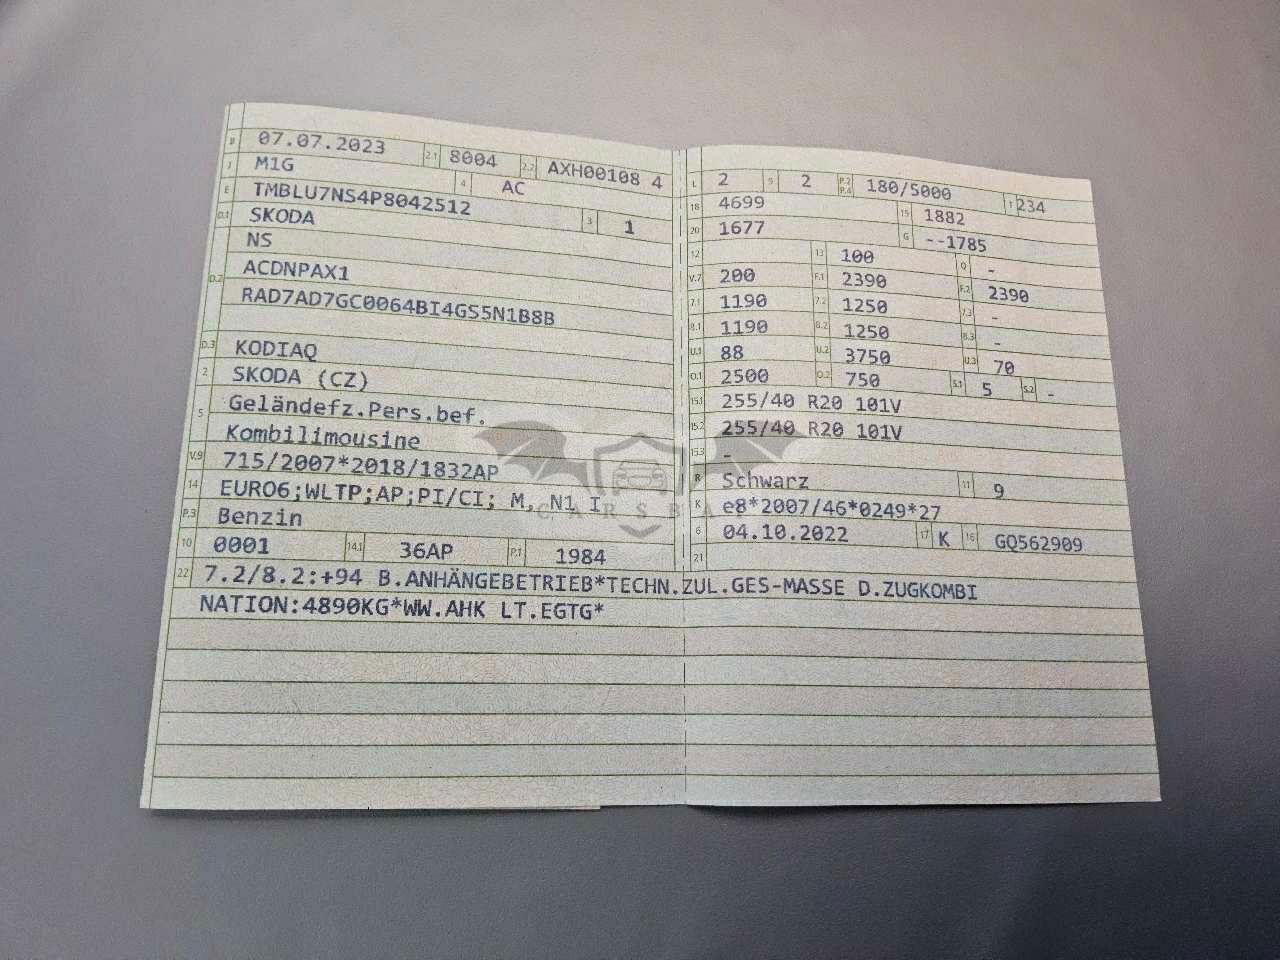 B 07.07.2023 2.1 8004 2.2 AXH00108 4
J M1G 4 AC
E TMBLU7NS4P8042512 3 1
D.1 SKODA
NS
D.2 ACDNPAX1
RAD7AD7GC0064BI4GS5N1B8B
D.3 KODIAQ
2 SKODA (CZ)
5 Geländefz.Pers.bef.
Kombilimousine
V.9 715/2007*2018/1832AP
14 EURO6;WLTP;AP;PI/CI; M, N1 I
P.3 Benzin
10 0001 14.1 36AP P.1 1984
L 2 9 2 P.2 P.4 180/5000 T 234
18 4699 19 1882
20 1677 G --1785
12 13 100 Q -
V.7 200 F.1 2390 F.2 2390
7.1 1190 7.2 1250 7.3 -
8.1 1190 8.2 1250 8.3 -
U.1 88 U.2 3750 U.3 70
O.1 2500 O.2 750 S.1 5 S.2 -
15.1 255/40 R20 101V
15.2 255/40 R20 101V
15.3 -
R Schwarz 11 9
K e8*2007/46*0249*27
6 04.10.2022 17 K 16 GQ562909
21
22 7.2/8.2:+94 B.ANHÄNGEBETRIEB*TECHN.ZUL.GES-MASSE D.ZUGKOMBI
NATION:4890KG*WW.AHK LT.EGTG*